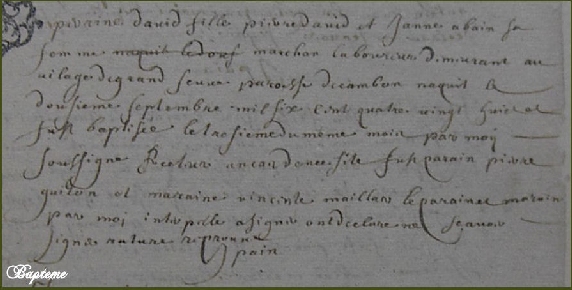 pierrine david fille pierre david et Janne abain sa
femme marchan laboureur dimurant au
vilage de grand seuve paroisse de cambon naquit le
dousieme septembre mil six cent quatre vingt huit et
fust baptisée le trosieme du même mois par moy
soussigné Recteur fust parain pierre
guidon et maraine vincente maillar le parain et marain
par moi a signer ont declare ne scavoir
signer
pain
Bapteme